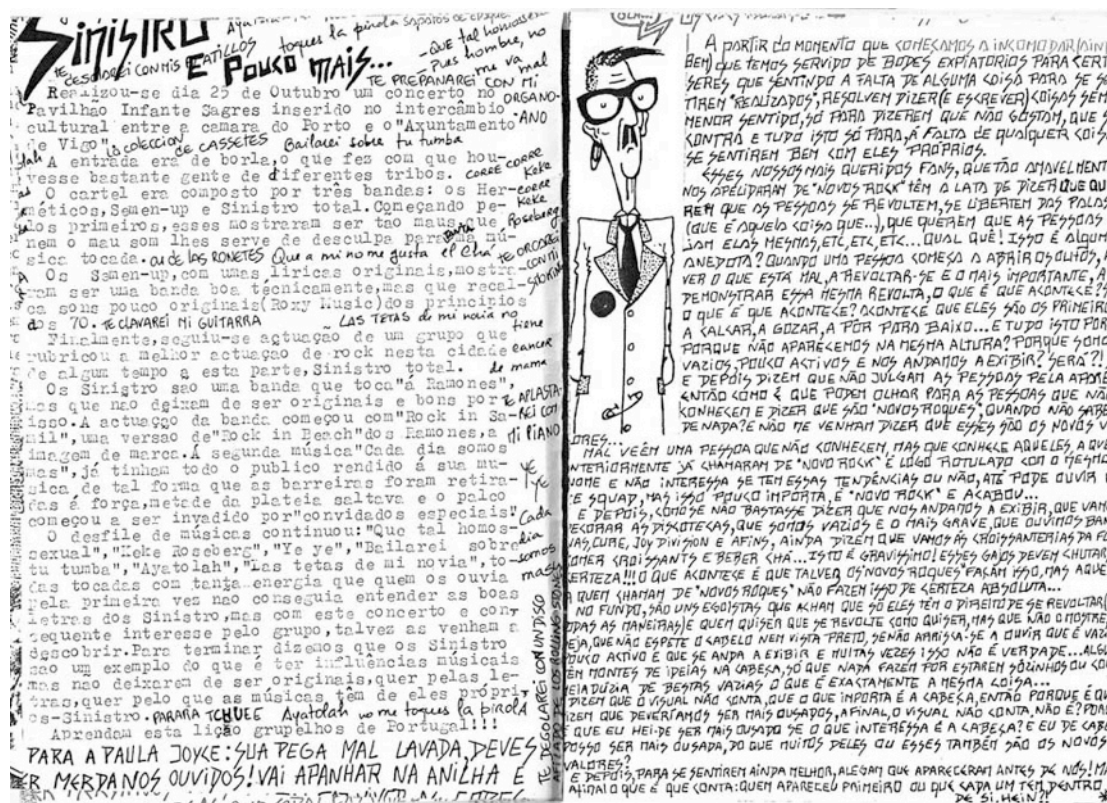 SINISTRO
E POUCO MAIS...
toques la pirola
- Que tal homossex
- Pues hombre, no
me va
mal
TE PREPANAREI CON MI
ORGANO
ANO
Realizou-se dia 25 de Outubro um concerto no
Pavilhão Infante Sagres inserido no intercâmbio
cultural entre a camara do Porto e o "Axuntamento
de Vigo". la coleccion de CASSETES Bailarei sobre tu tumba
A entrada era de borla, o que fez com que hou-
vesse bastante gente de diferentes tribos. CORRE CORRE
Keke
corre
Keke
Roseberg
O cartel era composto por três bandas: os Her-
méticos, Semen-up e Sinistro total. Começando pe-
los primeiros, esses mostraram ser tao maus, que
nem o mau som lhes serve de desculpa para a mú-
sica tocada. ou de las RONETES Que a mi no me gusta el Chá
Os Semen-up, com umas liricas originais, mostra-
ram ser uma banda boa técnicamente, mas que recal-
ca sons pouco originais (Roxy Music) dos principios
dos 70. TE CLAVAREI MI GUITARRA LAS TETAS de mi novia no
tiene
cancer
de mama
Finalmente, seguiu-se actuação de um grupo que
rubricou a melhor actuaçao de rock nesta cidade
de algum tempo a esta parte, Sinistro total.
Os Sinistro sao uma banda que toca "á Ramones",
mas que nao deixam de ser originais e bons por
isso. A actuação da banda começou com "Rock in Sa-
mil", uma versao de "Rock in Beach" dos Ramones, a
imagem de marca. Á segunda música "Cada dia somos
mas", já tinham todo o publico rendido á sua mu-
sica de tal forma que as barreiras foram retira-
das á força, metade da plateia saltava e o palco
começou a ser invadido por "convidados especiais".
TE APLASTA-
REI CON
MI PIANO
YE
YE
Cada
dia
somos
mas
O desfile de músicas continuou: "Que tal homos-
sexual", "Keke Roseberg", "Ye ye", "Bailarei sobre
tu tumba", "Ayatolah", "Las tetas de mi novia", to-
das tocadas com tanta energia que quem os ouvia
pela primeira vez nao conseguia entender as boas
letras dos Sinistro, mas com este concerto e con-
sequente interesse pelo grupo, talvez as venham a
descobrir. Para terminar dizemos que os Sinistro
sao um exemplo do que é ter influências músicais
mas nao deixarem de ser originais, quer pelas le-
tras, quer pelo que as músicas têm de eles própri-
os-Sinistro. PARARA TCHUEE Ayatolah no me toques la pirola
Aprendam esta lição grupelhos de Portugal!!!
TE DEGOLAREI CON UN DISCO
AFILADO DE LOS ROLLING STONES
PARA A PAULA JOYCE: SUA PEGA MAL LAVADA, DEVES
ER MERDA NOS OUVIDOS! VAI APANHAR NA ANILHA E
A PARTIR DO MOMENTO QUE COMEÇAMOS A INCOMODAR (AIN
BEM) QUE TEMOS SERVIDO DE BODES EXPIATORIOS PARA CERT
SERES QUE SENTINDO A FALTA DE ALGUMA COISA PARA SE S
TIREM "REALIZADOS", RESOLVEM DIZER (E ESCREVER) COISAS SEM
MENOR SENTIDO, SÓ PARA DIZEREM QUE NÃO GOSTAM, QUE S
CONTRA E TUDO ISTO SÓ PARA, Á FALTA DE QUALQUER COIS
SE SENTIREM BEM COM ELES PRÓPRIOS.
ESSES NOSSOS MAIS QUERIDOS FANS, QUE TÃO AMAVELMENT
NOS APELIDARAM DE "NOVOS ROCK" TÊM A LATA DE DIZER QUE QU
REM QUE AS PESSOAS SE REVOLTEM, SE LIBERTEM DAS PALAS
(QUE É AQUELA COISA QUE...), QUE QUEREM QUE AS PESSOAS
JAM ELAS MESMAS, ETC, ETC, ETC... QUAL QUÊ! ISSO É ALGUM
ANEDOTA? QUANDO UMA PESSOA COMEÇA A ABRIR OS OLHOS, A
VER O QUE ESTÁ MAL, A REVOLTAR-SE E O MAIS IMPORTANTE, A
DEMONSTRAR ESSA MESMA REVOLTA, O QUE É QUE ACONTECE?
O QUE É QUE ACONTECE? ACONTECE QUE ELES SÃO OS PRIMEIRO
A CALCAR, A GOZAR, A PÔR PARA BAIXO... E TUDO ISTO POR
PORQUE NÃO APARECEMOS NA MESMA ALTURA? PORQUE SOMO
VAZIOS, POUCO ACTIVOS E NOS ANDAMOS A EXIBIR? SERÁ?!
E DEPOIS DIZEM QUE NÃO JULGAM AS PESSOAS PELA APARÊ
ENTÃO COMO É QUE PODEM OLHAR PARA AS PESSOAS QUE NÃ
CONHECEM E DIZER QUE SÃO "NOVOS ROQUES", QUANDO NÃO SABE
DE NADA? E NÃO ME VENHAM DIZER QUE ESSES SÃO OS NOVOS V
ORES...
MAL VÊEM UMA PESSOA QUE NÃO CONHECEM, MAS QUE CONHECE AQUELES A QUE
NTERIORMENTE JÁ CHAMARAM DE "NOVO ROCK" É LOGO ROTULADO COM O MESMO
NOME E NÃO INTERESSA SE TEM ESSAS TENDÊNCIAS OU NÃO, ATÉ PODE OUVIR
E SQUAD, MAS ISSO POUCO IMPORTA, É "NOVO ROCK" E ACABOU...
E DEPOIS, COMO SE NÃO BASTASSE DIZER QUE NOS ANDAMOS A EXIBIR, QUE VAM
DECORAR AS DISCOTECAS, QUE SOMOS VAZIOS E O MAIS GRAVE, QUE OUVIMOS BAN
AS, CURE, JOY DIVISION E AFINS, AINDA DIZEM QUE VAMOS ÁS CROISSANTERIAS DA FO
COMER CROISSANTS E BEBER CHÁ... ISTO É GRAVISSIMO! ESSES GAJOS DEVEM CHUTAR
CERTEZA!!! O QUE ACONTECE É QUE TALVEZ OS "NOVOS ROQUES" FAÇAM ISSO, MAS AQUE
A QUEM CHAMAM DE "NOVOS ROQUES" NÃO FAZEM ISSO DE CERTEZA ABSOLUTA...
NO FUNDO, SÃO UNS EGOISTAS QUE ACHAM QUE SÓ ELES TÊM O DIREITO DE SE REVOLTAR (
ODAS AS MANEIRAS) E QUEM QUISER QUE SE REVOLTE COMO QUISER, MAS QUE NÃO O MOSTRE
EJA, QUE NÃO ESPETE O CABELO NEM VISTA PRETO, SENÃO ARRISCA-SE A OUVIR QUE É VAZI
OUCO ACTIVO E QUE SE ANDA A EXIBIR E MUITAS VEZES ISSO NÃO É VERDADE... ALGU
EM MONTES DE IDEIAS NA CABEÇA, SÓ QUE NADA FAZEM POR ESTAREM SÓZINHOS OU CO
EIA DÚZIA DE BESTAS VAZIAS O QUE É EXACTAMENTE A MESMA COISA...
DIZEM QUE O VISUAL NÃO CONTA, QUE O QUE IMPORTA É A CABEÇA, ENTÃO PORQUE É QU
IZEM QUE DEVERÍAMOS SER MAIS OUSADOS, AFINAL, O VISUAL NÃO CONTA, NÃO É? POR
QUE EU HEI-DE SER MAIS OUSADO SE O QUE INTERESSA É A CABEÇA? E EU DE CABE
POSSO SER MAIS OUSADA, DO QUE MUITOS DELES OU ESSES TAMBÉM SÃO OS NOVOS
VALORES?
E DEPOIS, PARA SE SENTIREM AINDA MELHOR, ALEGAM QUE APARECERAM ANTES DE NÓS! M
AFINAL O QUE É QUE CONTA: QUEM APARECEU PRIMEIRO OU QUE CADA UM TEM DENTRO
DE SI, HEIN?!